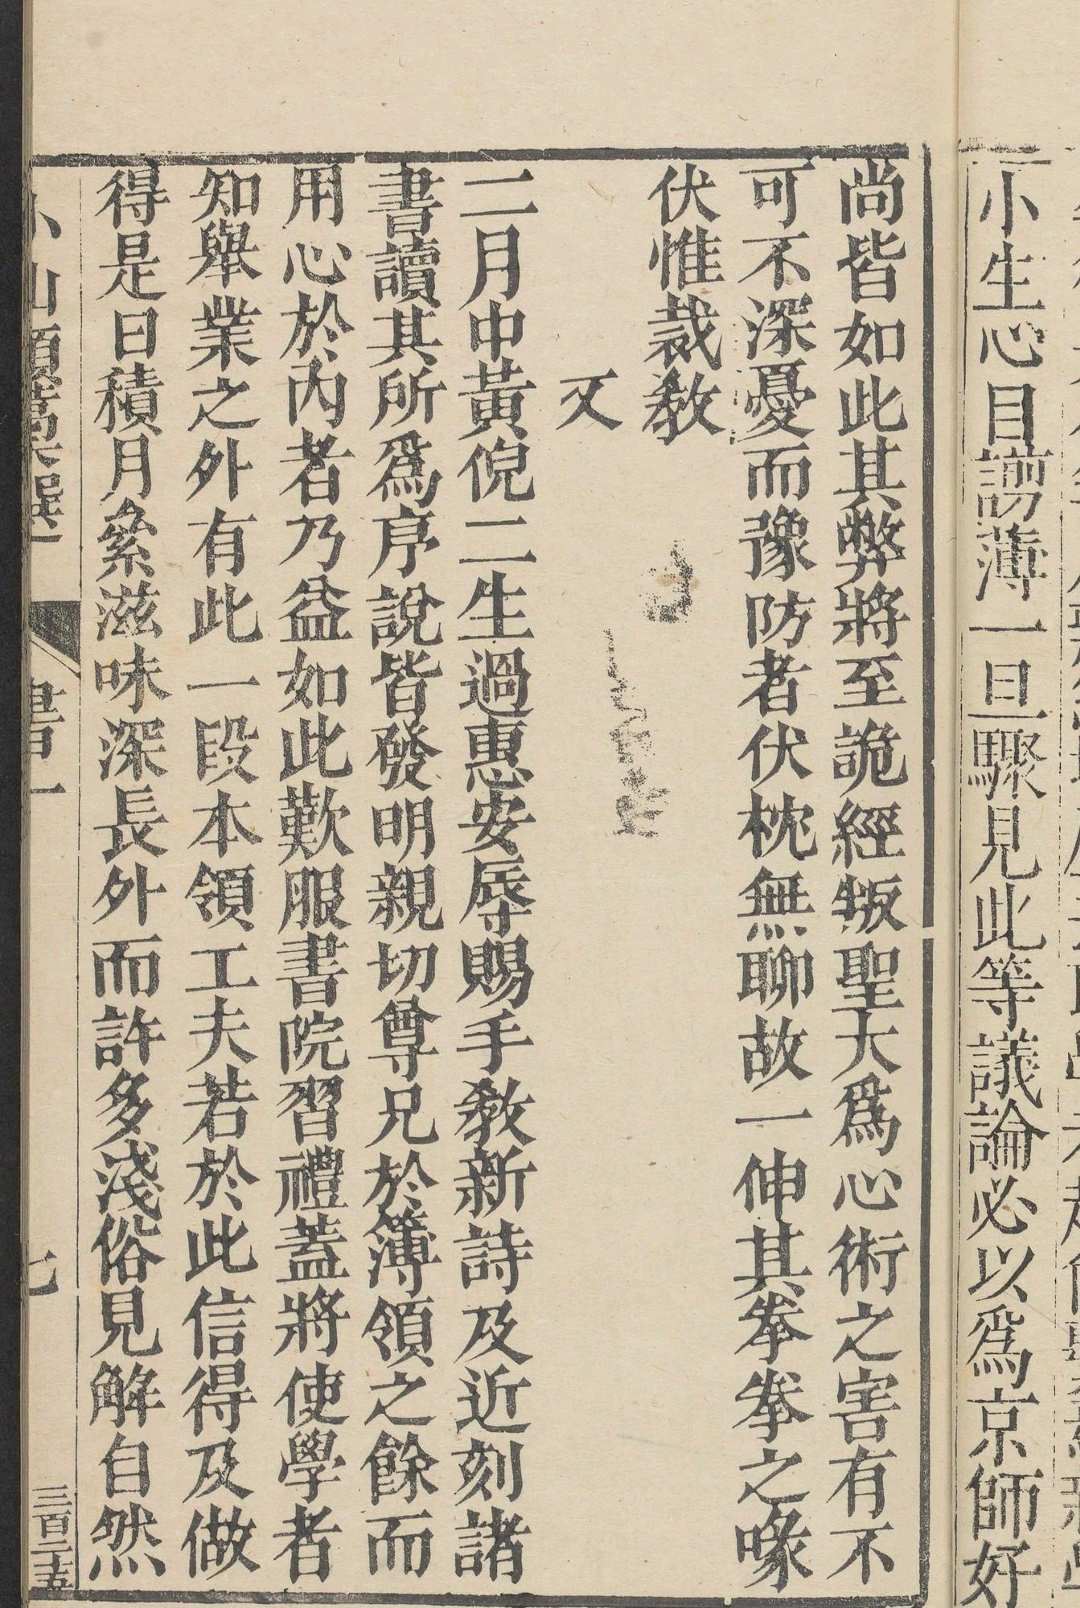 小生心目謭薄一旦驟見此等議論必以爲京師好
尚皆如此其弊將至詭經叛聖大爲心術之害有不
可不深憂而豫防者伏枕無聊故一伸其拳拳之喙
伏惟裁教
又
二月中黃倪二生過惠安辱賜手教新詩及近刻諸
書讀其所爲序說皆發明親切尊兄於簿領之餘而
用心於內者乃益如此歎服書院習禮蓋將使學者
知舉業之外有此一段本領工夫若於此信得及做
得是日積月絫滋味深長外而許多淺俗見解自然
小山類藁選
書一
七
三百三十五